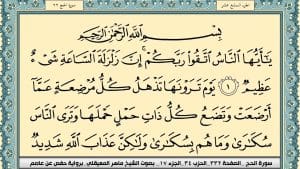 الجزء السابع عشر سورة الحج ٢٢
بِسْمِ ٱللَّهِ ٱلرَّحْمَٰنِ ٱلرَّحِيمِ
يَٰٓأَيُّهَا ٱلنَّاسُ ٱتَّقُوا۟ رَبَّكُمْ ۚ إِنَّ زَلْزَلَةَ ٱلسَّاعَةِ شَىْءٌ
عَظِيمٌ ١ يَوْمَ تَرَوْنَهَا تَذْهَلُ كُلُّ مُرْضِعَةٍ عَمَّآ
أَرْضَعَتْ وَتَضَعُ كُلُّ ذَاتِ حَمْلٍ حَمْلَهَا وَتَرَى ٱلنَّاسَ
سُكَٰرَىٰ وَمَا هُم بِسُكَٰرَىٰ وَلَٰكِنَّ عَذَابَ ٱللَّهِ شَدِيدٌ
سورة الحج . الصفحة ٣٣٢. الحزب ٣٤. الجزء ١٧. بصوت الشيخ ماهر المعيقلي. برواية حفص عن عاصم